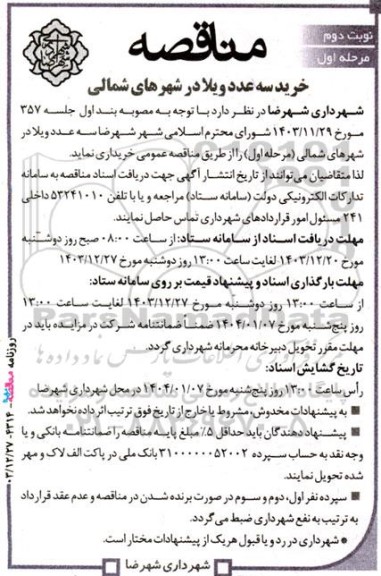 نوبت دوم
مرحله اول
مناقصه
خرید سه عدد ویلا در شهرهای شمالی
شهرداری شهرضا در نظر دارد با توجه به مصوبه بند اول جلسه ۳۵۷
مورخ ۱۴۰۳/۱۱/۲۹ شورای محترم اسلامی شهر شهرضا سه عدد ویلا در
شهرهای شمالی (مرحله اول) را از طریق مناقصه عمومی خریداری نماید.
لذا متقاضیان می توانند از تاریخ انتشار آگهی جهت دریافت اسناد مناقصه به سامانه
تدارکات الکترونیکی دولت (سامانه ستاد) مراجعه و یا با تلفن ۵۳۲۴۱۰۱۰ داخلی
۲۴۱ مسئول امور قراردادهای شهرداری تماس حاصل نمایند.
مهلت دریافت اسناد از سامانه ستاد: از ساعت ۰۸:۰۰ صبح روز دوشنبه
مورخ ۱۴۰۳/۱۲/۲۰ لغایت ساعت ۱۳:۰۰ روز دوشنبه مورخ ۱۴۰۳/۱۲/۲۷
مهلت بارگذاری اسناد و پیشنهاد قیمت بر روی سامانه ستاد:
از ساعت ۱۳:۰۰ روز دوشنبه مورخ ۱۴۰۳/۱۲/۲۷ لغایت ساعت ۱۳:۰۰
روز پنج شنبه مورخ ۱۴۰۴/۰۱/۰۷ ضمنا ضمانتنامه شرکت در مزایده باید در
مهلت مقرر تحویل دبیرخانه محرمانه شهرداری گردد.
تاریخ گشایش اسناد:
رأس ساعت ۱۳:۰۰ روز پنج شنبه مورخ ۱۴۰۴/۰۱/۰۷ در محل شهرداری شهرضا
■ به پیشنهادات مخدوش، مشروط یا خارج از تاریخ فوق ترتیب اثر داده نخواهد شد.
■ پیشنهاد دهندگان باید حداقل ۵٪ مبلغ پایه مناقصه را ضمانتنامه بانکی و یا
وجه نقد به حساب سپرده ۳۱۰۰۰۰۰۰۵۲۰۰۲ بانک ملی در پاکت الف لاک و مهر
شده تحویل نمایند.
■ سپرده نفر اول، دوم و سوم در صورت برنده شدن در مناقصه و عدم عقد قرارداد
به ترتیب به نفع شهرداری ضبط می گردد.
● شهرداری در رد و یا قبول هر یک از پیشنهادات مختار است.
شهرداری شهرضا
روزنامه
۰۳/۱۲/۲۷-۶۳۱۴
ParsNamadData